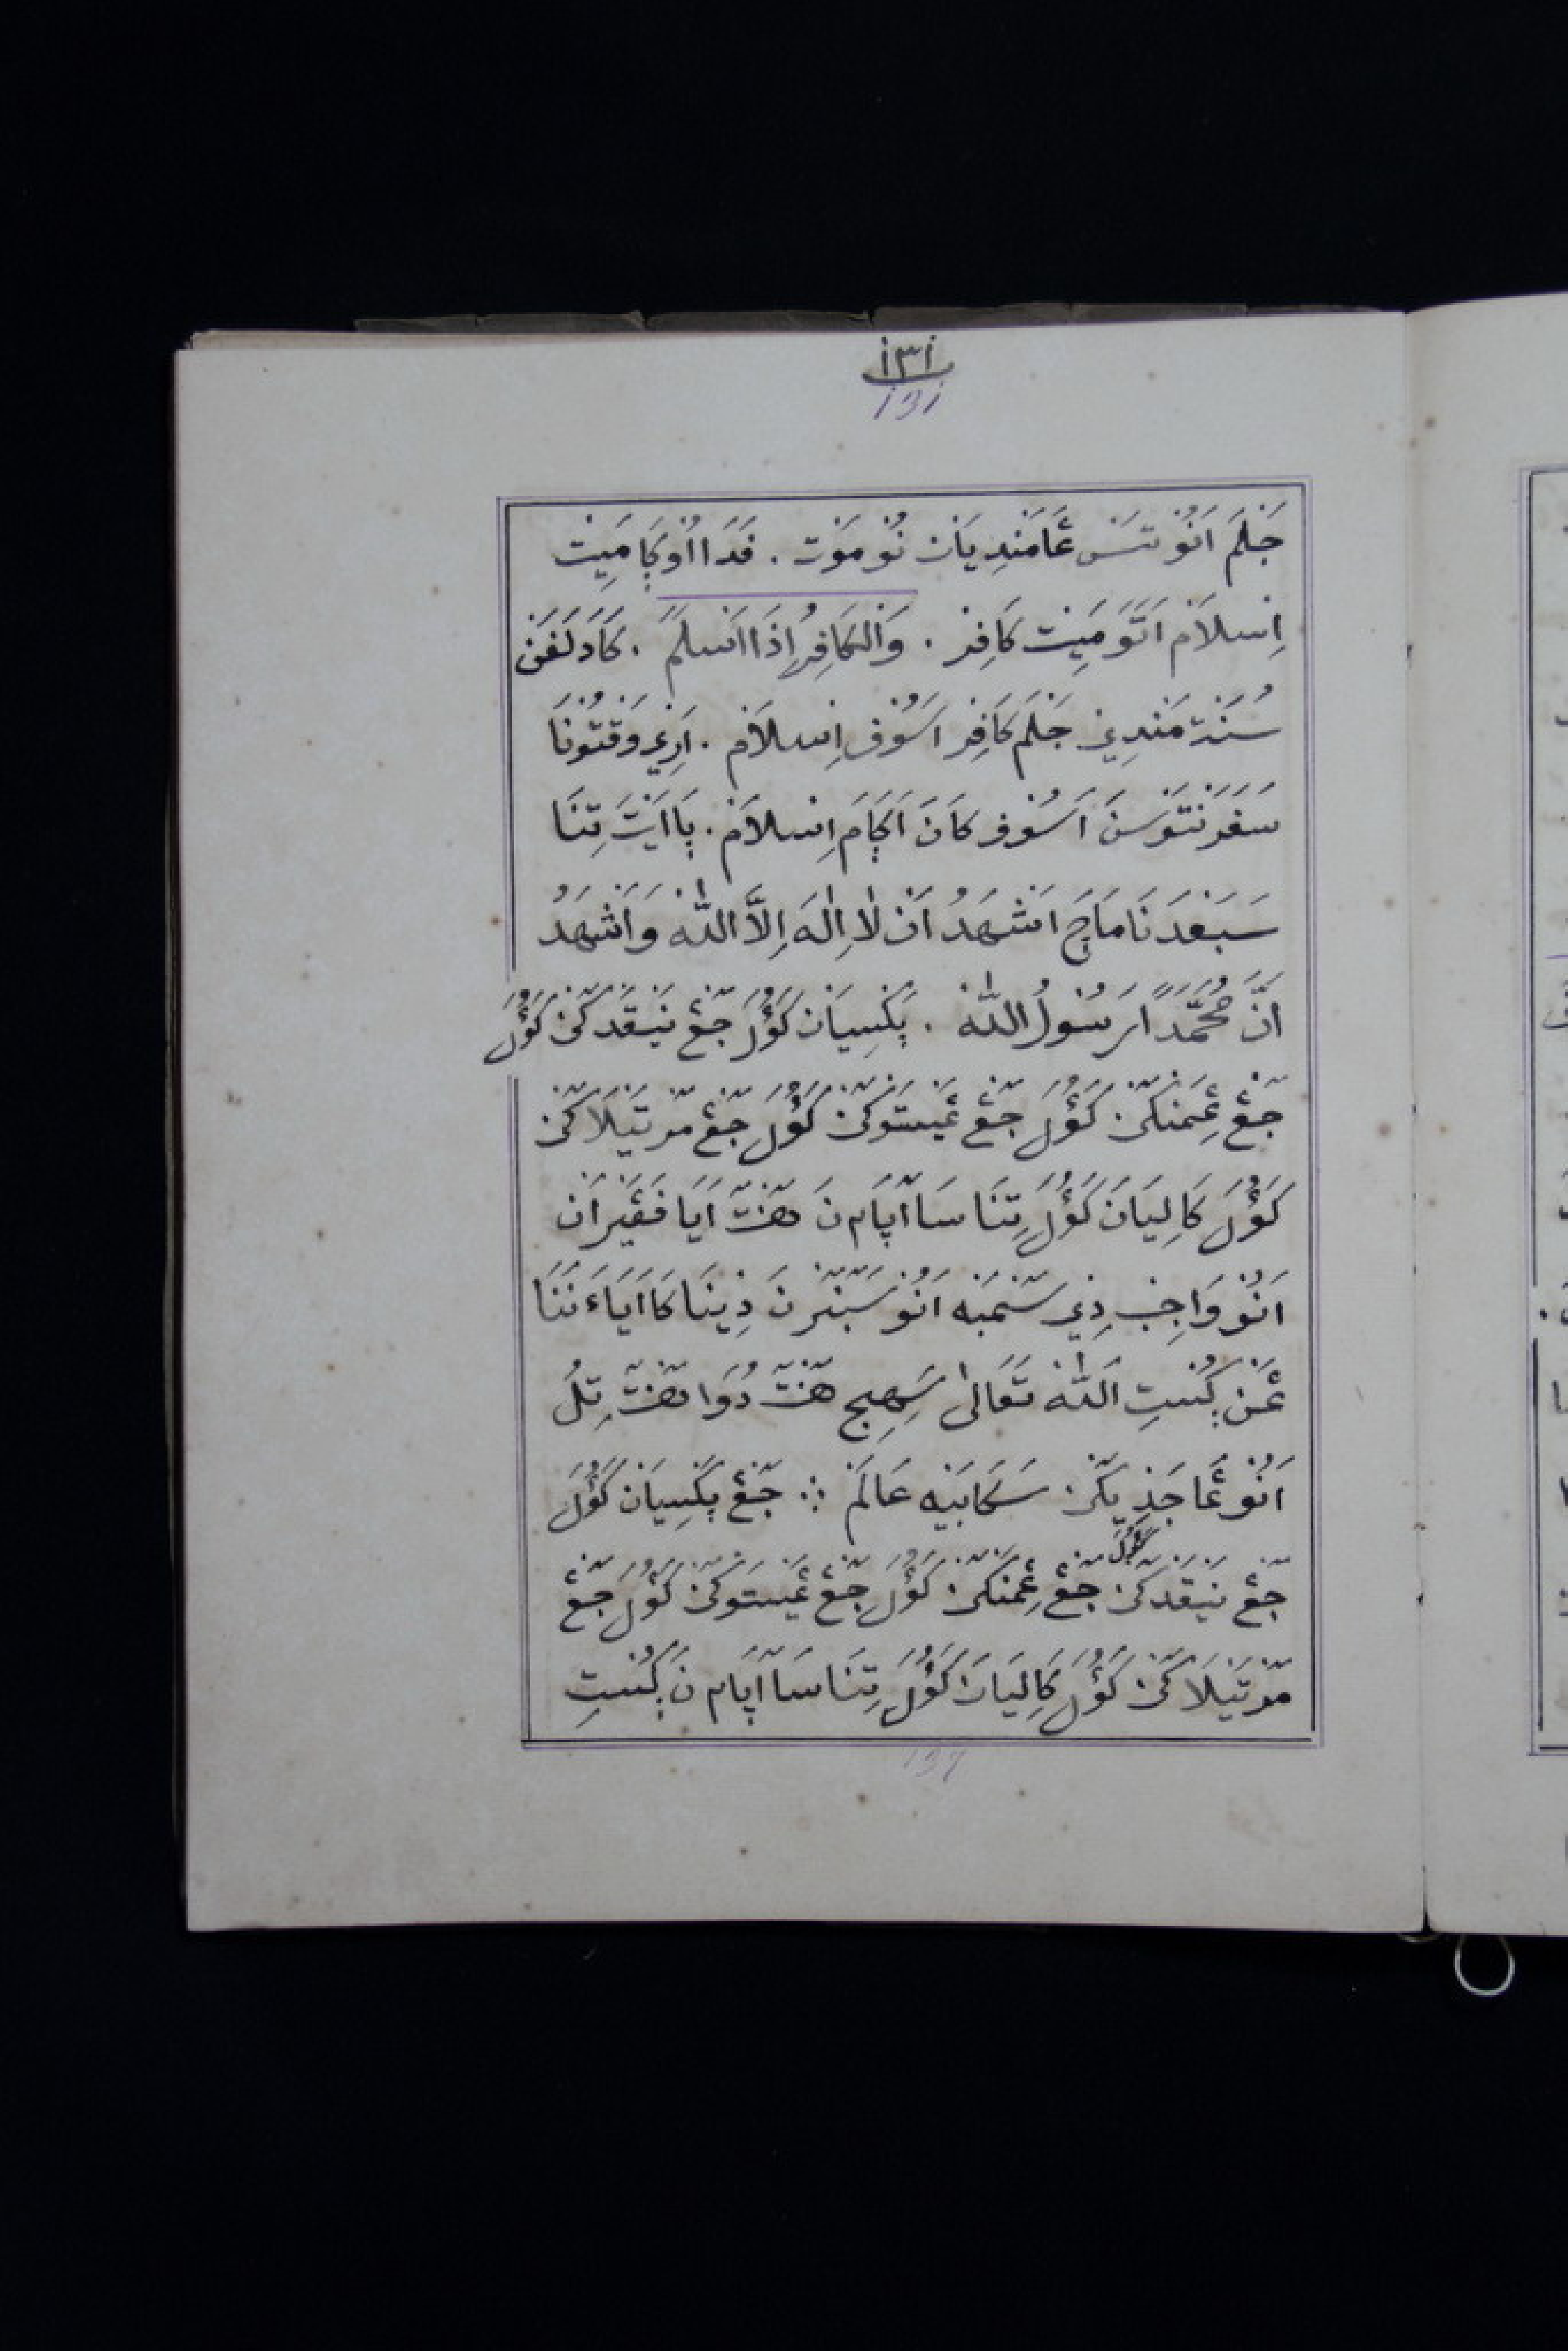 ١٣١
131
جَلْمَ اَنُوْ تَسْ ڠَامَنْدِيَانْ نُوْ مَوْتْ . فَدَا اُوݢَامَيِتْ
اِسْلَامْ اَتَوَ مَيِتْ كَافِرْ . وَالْكَافِرُ اِذَا اَسْلَمَ . كَادَلَفَنْ
سُنَةْ مَنْدِيْ جَلْمَ كَافِرْ اَسُوْفْ اِسْلَامْ . اَرِيْ وَقْتُوْنَا
سَفَرَنْتَوْسنَ اَسُوْفْ كَانَ اَݢَامَ اِسْلَامْ . ݒَاايْتَ تِنَا
سَبَعْدَنَا مَاچَ اَشْهَدُ اَنْ لَا اِلٰهَ اِلَّا اللّٰهْ وَاَشْهَدُ
اَنَّ مُحَمَّدًا رَسُوْلُ اللّٰهْ . ݒَڠْسِيَانْ كَوُلَ جڠ نيقدكن كَوُلَ
جڠ ڠِمنكن كَوُلَ جڠ ڠَيستوكن كَوُلَ جڠ مرتيلاكن
كَوُلَ كَالِيَانْ كَوُلَ تِنَا سَا اݒام نَ هنت اَيَا فَقَيْرَانْ
اَنُوْ وَاجِبْ دِيْ سمبه اَنُوْ سبنرنَ دِيْنَا كَااَيَاءَنَنَا
ڠَنْ ݢُسْتِ اَللّٰهْ تَعَالٰى سَهِجِ هنت دُوَا هنت تِلُ
اَنُوْ ڠَاجَذِيكن سَكَابَيْه عَالَمْ ∴ جڠ ݒَڠْسِيَانْ كَوُلَ
جڠ نيقدكن كَوُلَ جڠ ڠِمنكن كَوُلَ جڠ ڠَيستوكن كَوُلَ جڠ
مرتيلاكن كَوُلَ كَالِيَانْ كَوُلَ تِنَا سَا اݒام نَ ݢُسْتِ